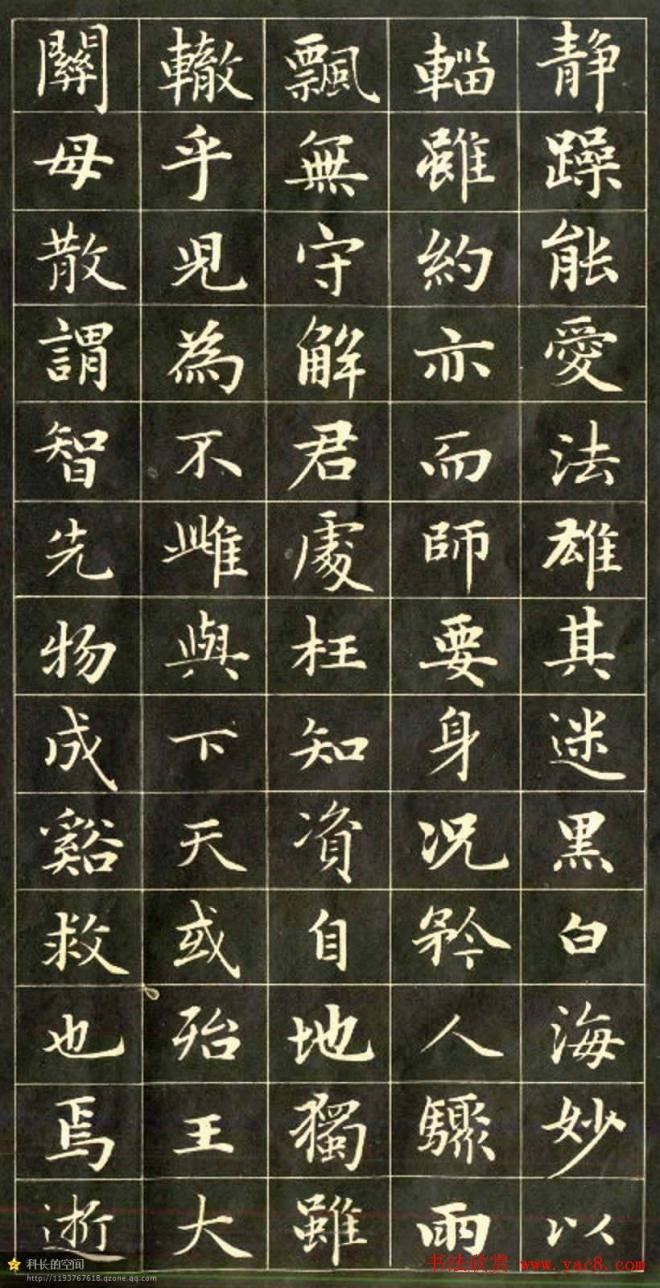 静躁能愛法雄其迷黑白海妙以
輜雖約亦而師要身況矜人驟雨
飄無守解君處枉知資自地獨雖
轍乎兒為不雌與下天或殆王大
關母散謂智先物成谿救也焉逝
科长的空间
http://1193767618.qzone.qq.com
书法欣赏 www.yac8.com